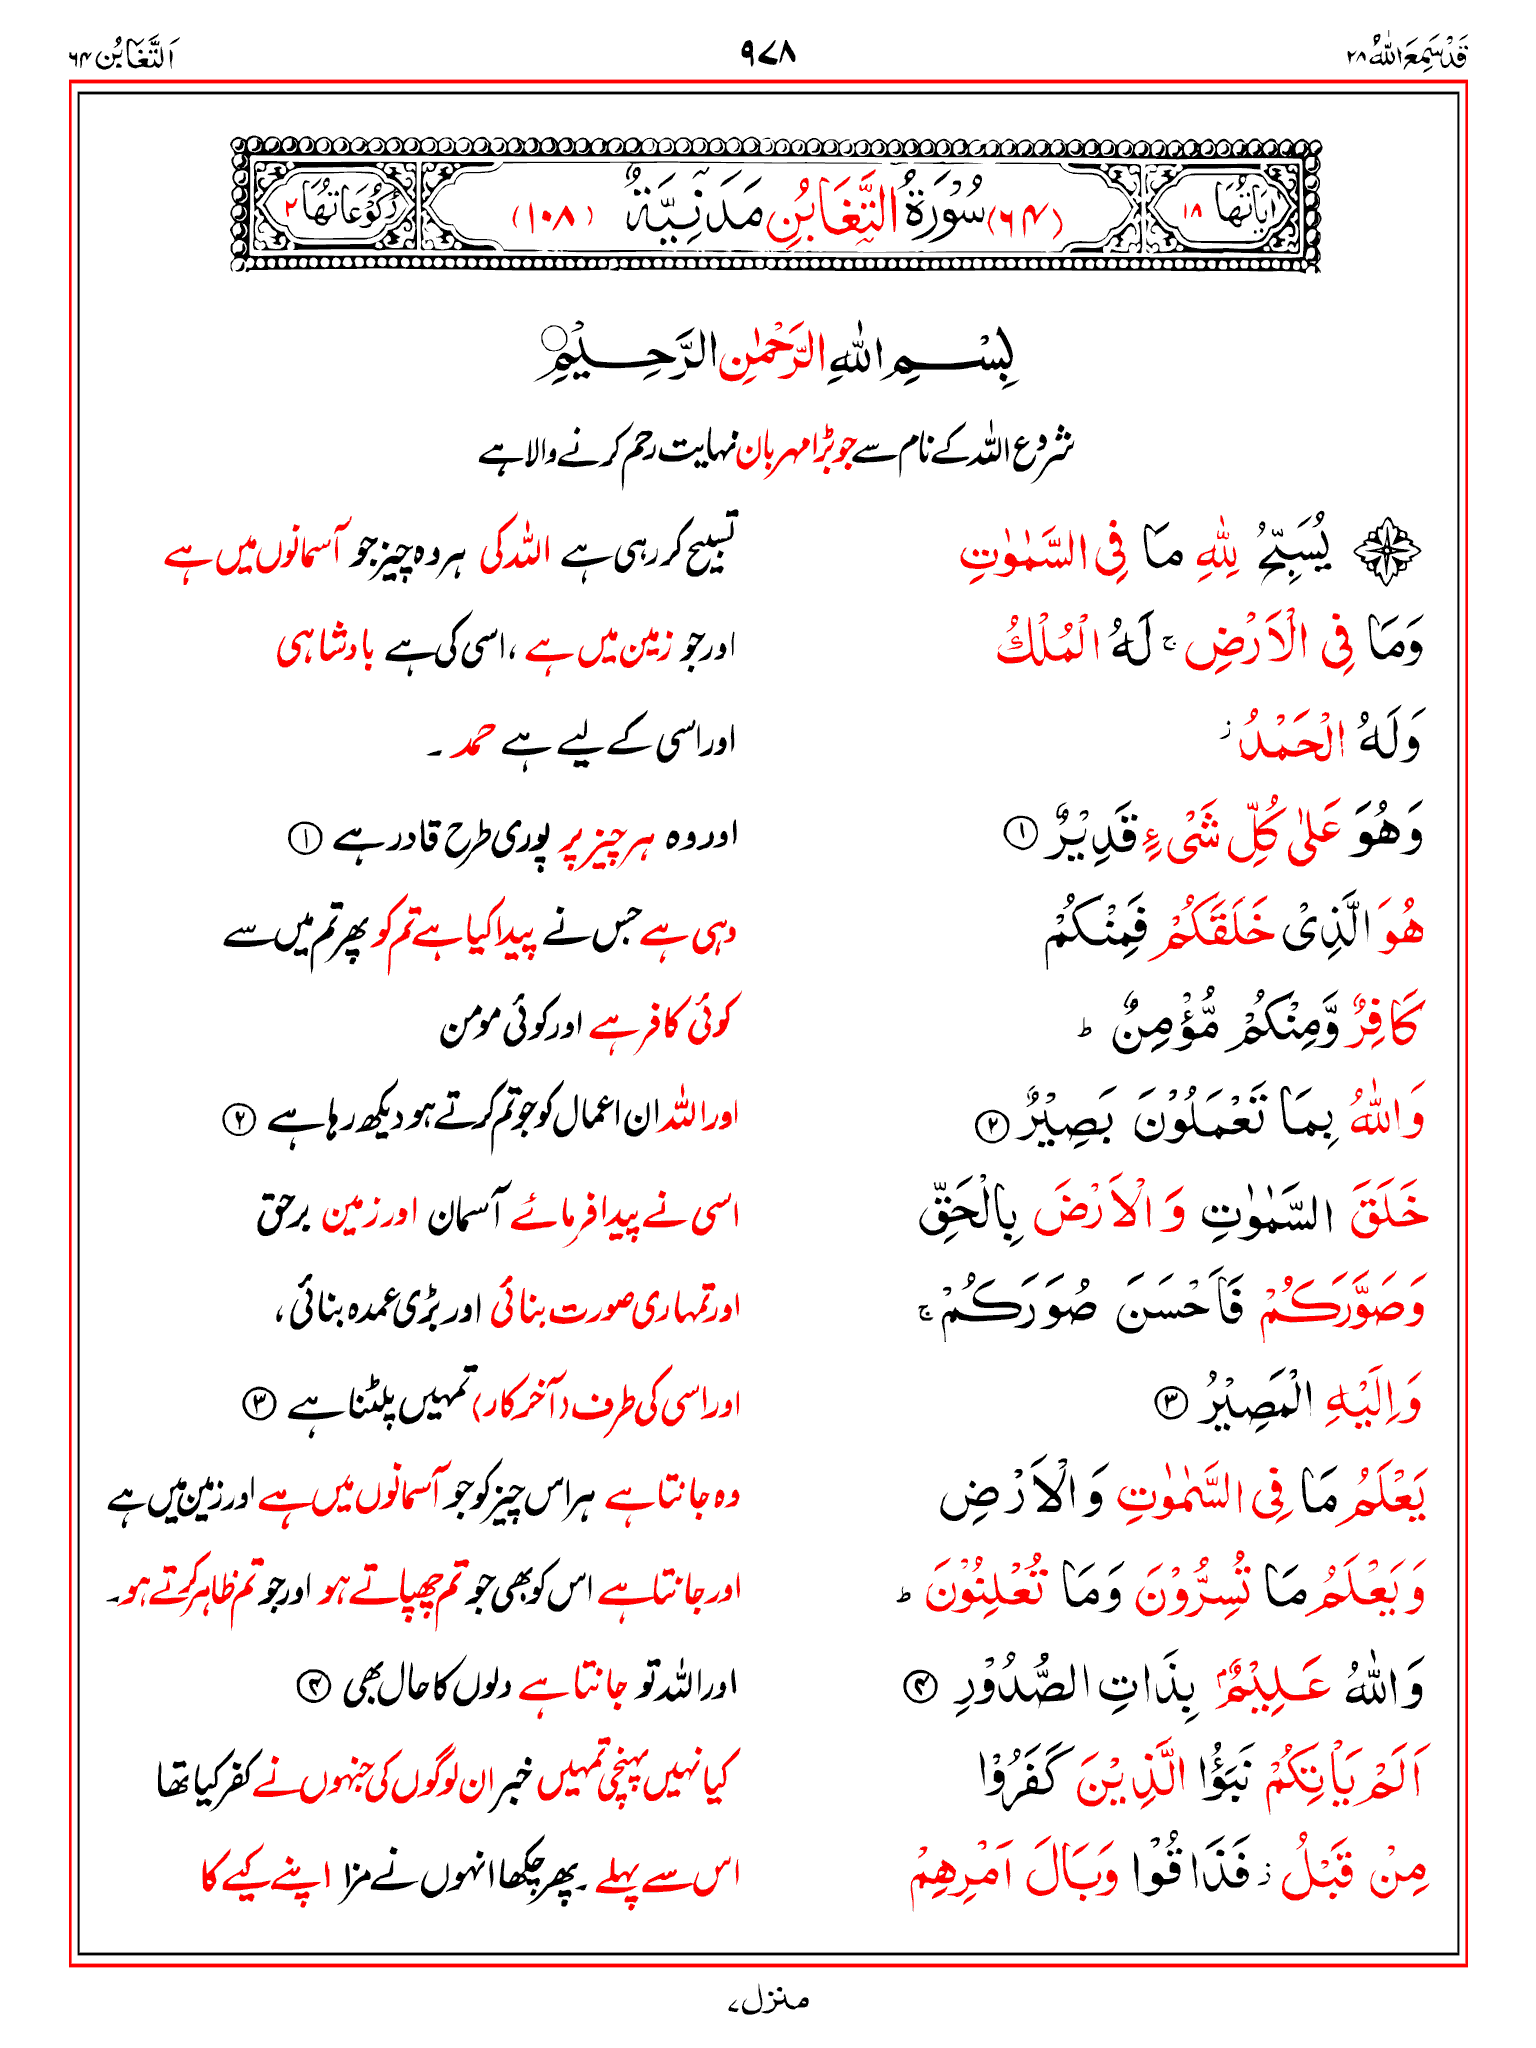 قَدْ سَمِعَ اللّٰهُ ۲۸
۹۷۸
اَلتَّغَابُن ۶۴
اٰيَاتُهَا ۱۸
(۶۴) سُوْرَةُ التَّغَابُنِ مَدَنِيَّةٌ (۱۰۸)
رُكُوْعَاتُهَا ۲
بِسْمِ اللّٰهِ الرَّحْمٰنِ الرَّحِيْمِ
شروع اللہ کے نام سے جو بڑا مہربان نہایت رحم کرنے والا ہے
يُسَبِّحُ لِلّٰهِ مَا فِى السَّمٰوٰتِ تسبیح کر رہی ہے اللہ کی ہر وہ چیز جو آسمانوں میں ہے
وَمَا فِى الْاَرْضِ ۚ لَهُ الْمُلْكُ اور جو زمین میں ہے، اسی کی ہے بادشاہی
وَلَهُ الْحَمْدُ ز اور اسی کے لیے ہے حمد ۔
وَهُوَ عَلٰى كُلِّ شَىْءٍ قَدِيْرٌ ۱ اور وہ ہر چیز پر پوری طرح قادر ہے ۱
هُوَ الَّذِىْ خَلَقَكُمْ فَمِنْكُمْ وہی ہے جس نے پیدا کیا ہے تم کو پھر تم میں سے
كَافِرٌ وَّمِنْكُمْ مُّؤْمِنٌ ط کوئی کافر ہے اور کوئی مومن
وَاللّٰهُ بِمَا تَعْمَلُوْنَ بَصِيْرٌ ۲ اور اللہ ان اعمال کو جو تم کرتے ہو دیکھ رہا ہے ۲
خَلَقَ السَّمٰوٰتِ وَالْاَرْضَ بِالْحَقِّ اسی نے پیدا فرمائے آسمان اور زمین برحق
وَصَوَّرَكُمْ فَاَحْسَنَ صُوَرَكُمْ ۚ اور تمہاری صورت بنائی اور بڑی عمدہ بنائی،
وَاِلَيْهِ الْمَصِيْرُ ۳ اور اسی کی طرف (آخر کار) تمہیں پلٹنا ہے ۳
يَعْلَمُ مَا فِى السَّمٰوٰتِ وَالْاَرْضِ وہ جانتا ہے ہر اس چیز کو جو آسمانوں میں ہے اور زمین میں ہے
وَيَعْلَمُ مَا تُسِرُّوْنَ وَمَا تُعْلِنُوْنَ ط اور جانتا ہے اس کو بھی جو تم چھپاتے ہو اور جو تم ظاہر کرتے ہو۔
وَاللّٰهُ عَلِيْمٌۢ بِذَاتِ الصُّدُوْرِ ۴ اور اللہ تو جانتا ہے دلوں کا حال بھی ۴
اَلَمْ يَاْتِكُمْ نَبَؤُا الَّذِيْنَ كَفَرُوْا کیا نہیں پہنچی تمہیں خبر ان لوگوں کی جنہوں نے کفر کیا تھا
مِنْ قَبْلُ ز فَذَاقُوْا وَبَالَ اَمْرِهِمْ اس سے پہلے ۔ پھر چکھا انہوں نے مزا اپنے کیے کا
منزل ۷